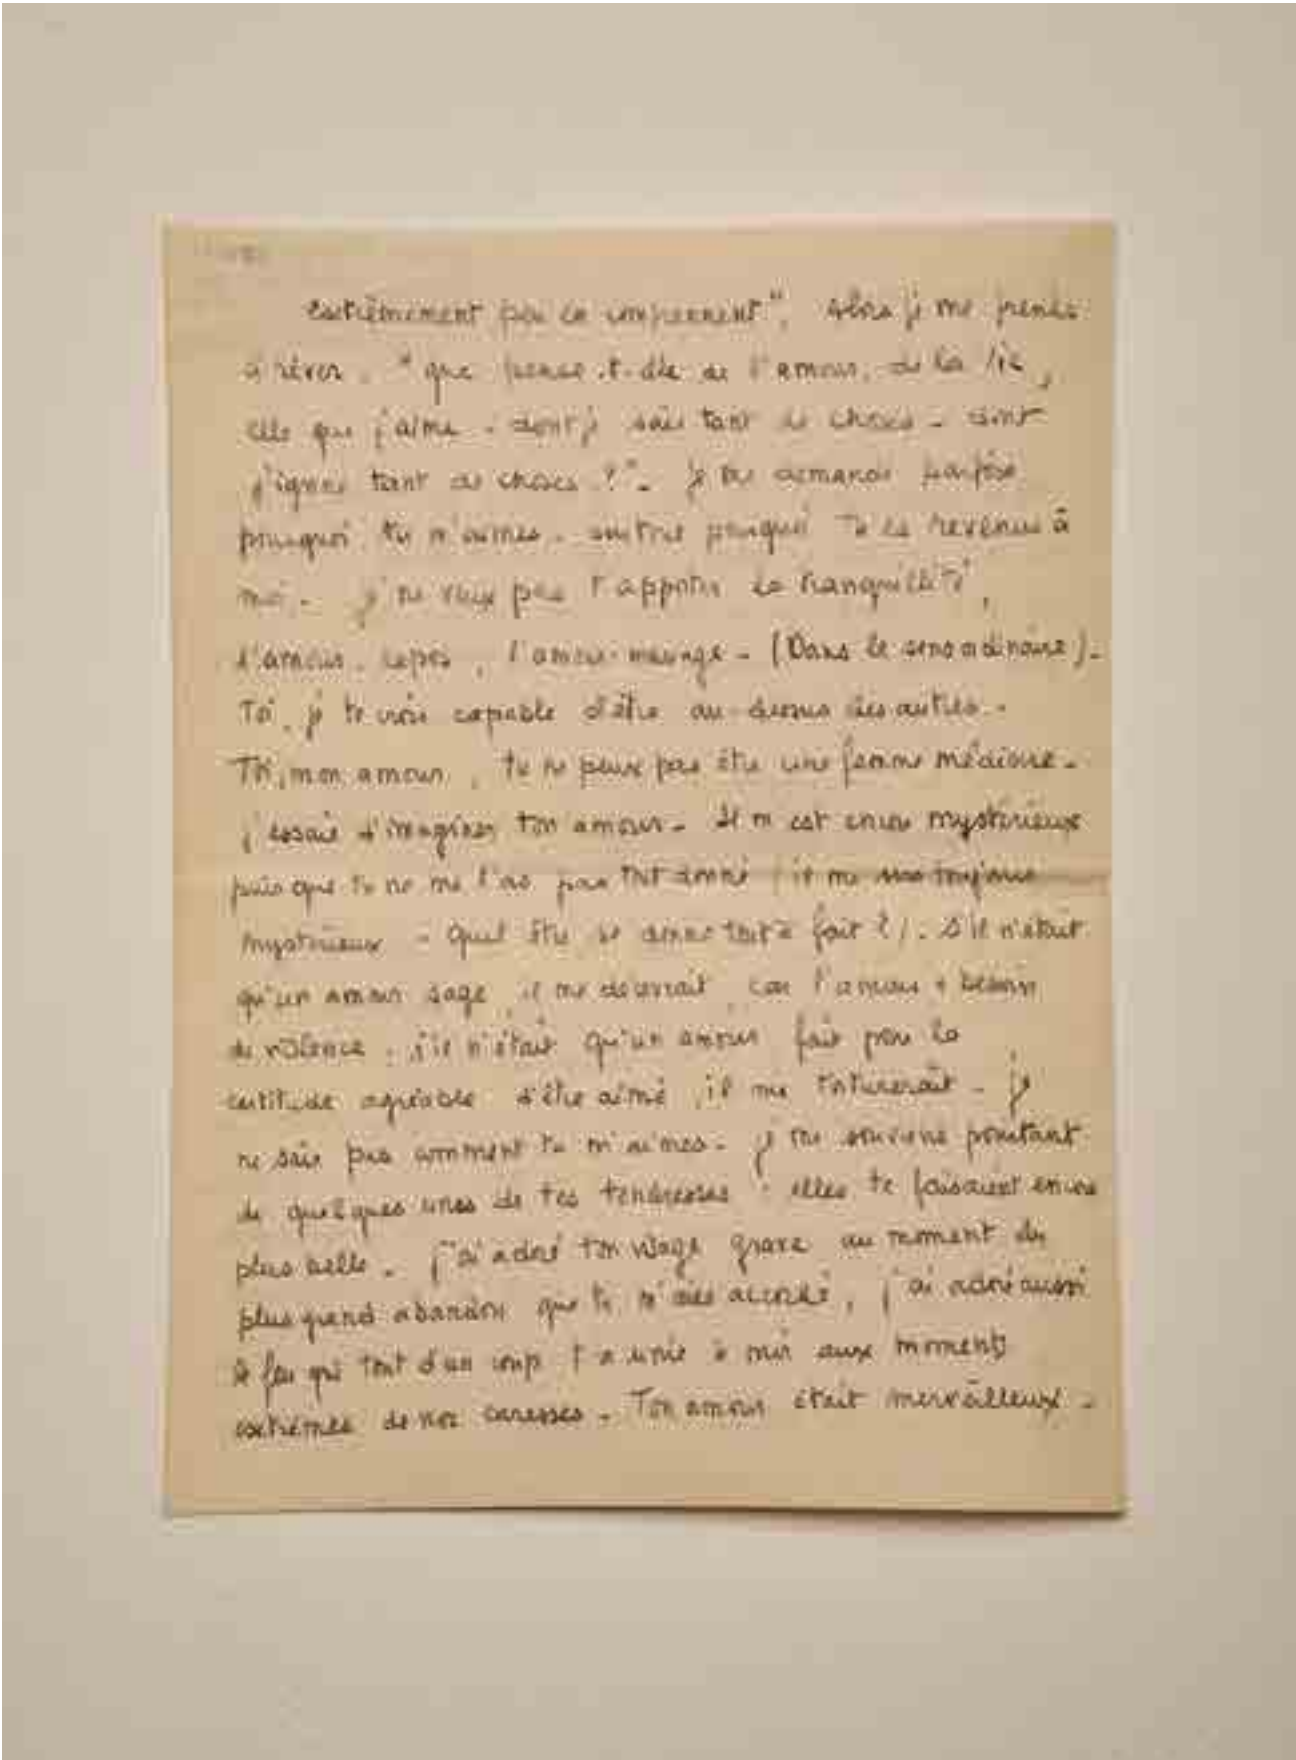 extrêmement peu le comprennent". Alors je me prends
à rêver. "que pense-t-elle de l'amour, de la vie,
elle que j'aime - dont je sais tant de choses - dont
j'ignore tant de choses ?". Je me demande parfois
pourquoi tu m'aimes - surtout pourquoi Tu es revenue à
moi - je ne veux pas t'apporter la tranquillité,
l'amour-repos, l'amour-mariage - (Dans le sens ordinaire).
Toi, je te crois capable d'être au-dessus des autres -
Toi, mon amour, tu ne peux pas être une femme médiocre -
j'essaie d'imaginer ton amour - Il m'est encore mystérieux
puisque tu ne me l'as pas tout donné (il me sera toujours
mystérieux - quel être se donne tout à fait ?). S'il n'était
qu'un amour sage, il me décevrait, car l'amour a besoin
de violence. S'il n'était qu'un amour fait pour la
certitude agréable d'être aimé, il me torturerait - je
ne sais pas comment tu m'aimes - je me souviens pourtant
de quelques unes de tes tendresses : elles te faisaient encore
plus belle. j'ai adoré ton visage grave au moment du
plus grand abandon que tu m'aies accordé, j'ai adoré aussi
le feu qui tout d'un coup t'a unie à moi aux moments
extrêmes de nos caresses - Ton amour était merveilleux -